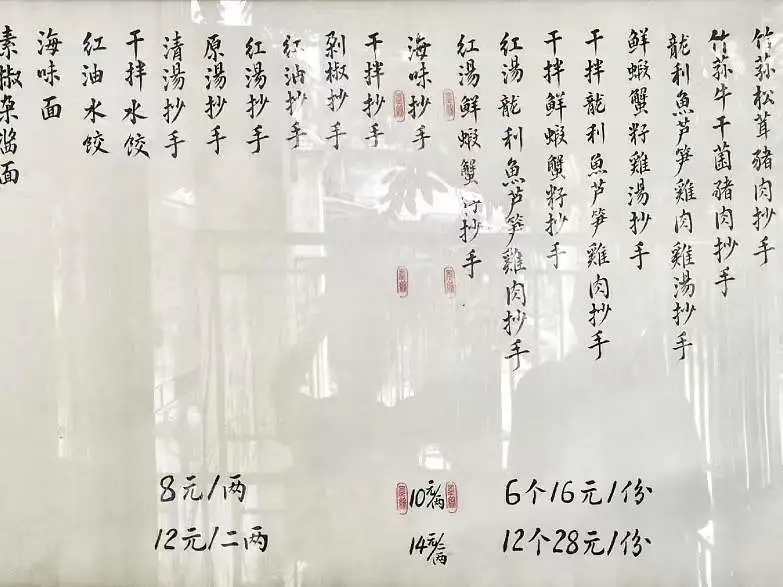 竹荪松茸豬肉抄手
竹荪牛干菌豬肉抄手
龍利魚芦笋雞肉雞湯抄手
鮮蝦蟹籽雞湯抄手
干拌龍利魚芦笋雞肉抄手
干拌鮮蝦蟹籽抄手
红湯龍利魚芦笋雞肉抄手
红湯鮮蝦蟹籽抄手
海味抄手
干拌抄手
剁椒抄手
红油抄手
红湯抄手
原湯抄手
清湯抄手
干拌水饺
红油水饺
海味面
素椒杂酱面
6个16元/份
12个28元/份
10元/两
14元/二两
8元/两
12元/二两